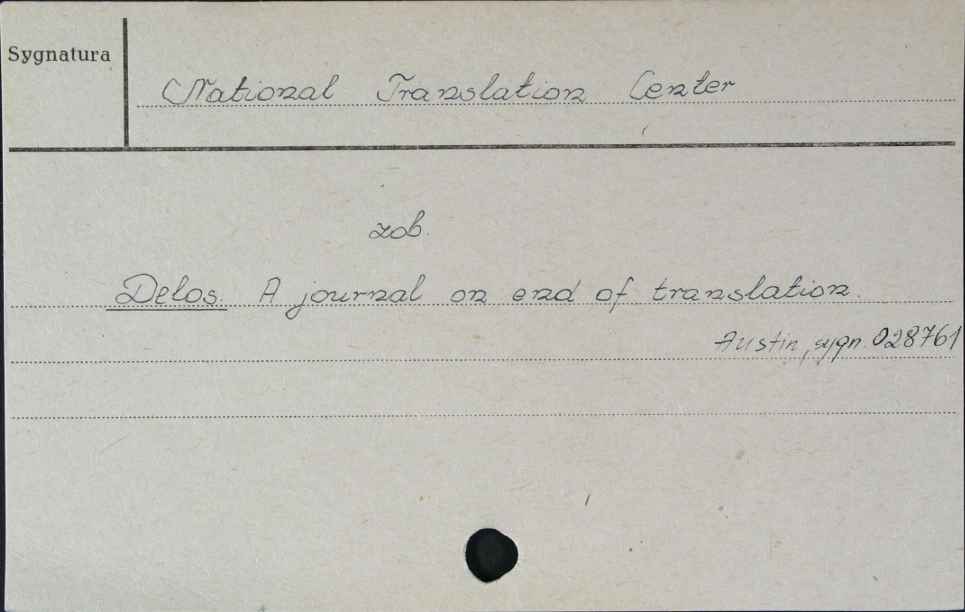 Sygnatura
National Translation Center
zob.
Delos. A journal on end of translation.
Austin, sygn. 028761